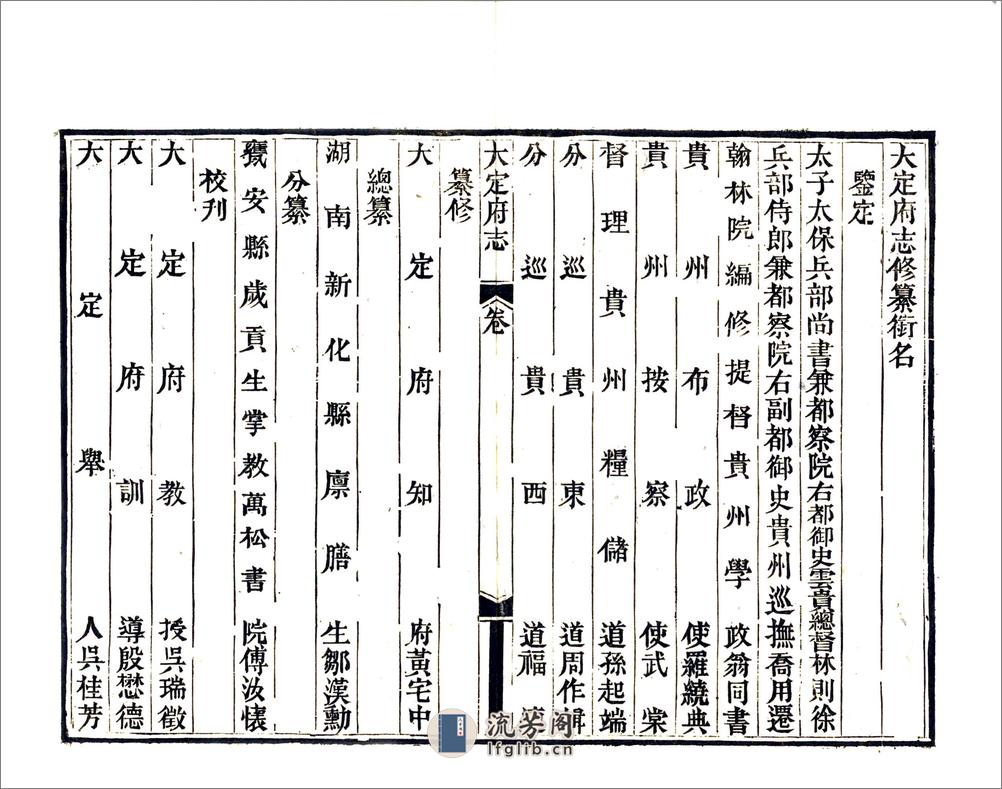 大定府志修纂銜名
鑒定
太子太保兵部尚書兼都察院右都御史雲貴總督林則徐
兵部侍郎兼都察院右副都御史貴州巡撫喬用遷
翰林院編修提督貴州學政翁同書
貴州布政使羅繞典
貴州按察使武棠
督理貴州糧儲道孫起端
分巡貴東道周作楫
分巡貴西道福
大定府志 卷
纂修
大定府知府黃宅中
總纂
湖南新化縣廩膳生鄒漢勳
分纂
甕安縣歲貢生掌教萬松書院傅汝懷
校刊
大定府教授吳瑞徵
大定府訓導殷懋德
大定舉人吳桂芳
流芳阁
lfglib.cn